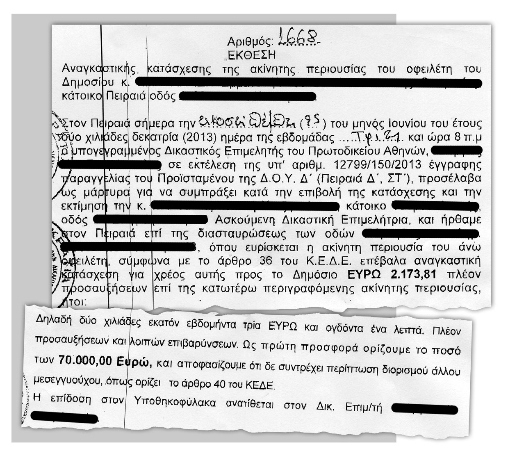 Αριθμός: 1668
ΕΚΘΕΣΗ
Αναγκαστικής κατάσχεσης της ακίνητης περιουσίας του οφειλέτη του
Δημοσίου κ.
κάτοικο Πειραιά οδός
Στον Πειραιά σήμερα την είκοσι πέντε (25) του μηνός Ιουνίου του έτους
δύο χιλιάδες δεκατρία (2013) ημέρα της εβδομάδας ....Τρίτη και ώρα 8 π.μ
ο υπογεγραμμένος Δικαστικός Επιμελητής του Πρωτοδικείου Αθηνών,
σε εκτέλεση της υπ' αριθμ. 12799/150/2013 έγγραφης
παραγγελίας του Προϊσταμένου της Δ.Ο.Υ. Δ΄ (Πειραιά Δ΄, ΣΤ΄), προσέλαβα
ως μάρτυρα για να συμπράξει κατά την επιβολή της κατάσχεσης και την
εκτίμηση την κ. κάτοικο
οδός Ασκούμενη Δικαστική Επιμελήτρια, και ήρθαμε
στον Πειραιά επί της διασταυρώσεως των οδών
, όπου ευρίσκεται η ακίνητη περιουσία του άνω
οφειλέτη, σύμφωνα με το άρθρο 36 του Κ.Ε.Δ.Ε. επέβαλα αναγκαστική
κατάσχεση για χρέος αυτής προς το Δημόσιο ΕΥΡΩ 2.173,81 πλέον
προσαυξήσεων επί της κατωτέρω περιγραφόμενης ακίνητης περιουσίας,
ήτοι:
Δηλαδή δύο χιλιάδες εκατόν εβδομήντα τρία ΕΥΡΩ και ογδόντα ένα λεπτά. Πλέον
προσαυξήσεων και λοιπών επιβαρύνσεων. Ως πρώτη προσφορά ορίζουμε το ποσό
των 70.000,00 Ευρώ, και αποφασίζουμε ότι δε συντρέχει περίπτωση διορισμού άλλου
μεσεγγυούχου, όπως ορίζει το άρθρο 40 του ΚΕΔΕ.
Η επίδοση στον Υποθηκοφύλακα ανατίθεται στον Δικ. Επιμ/τή